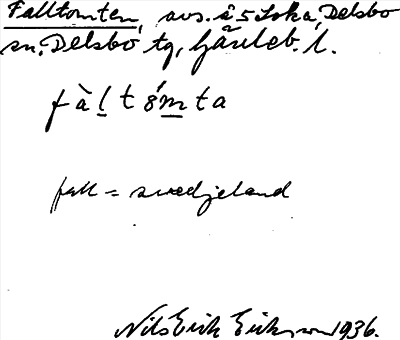 Falltomten, avs. å 5 Loka, Delsbo
sn, Delsbo tg, Gävleb. l.
fàltómta
fall = svedjeland
Nils Erik Eriksson 1936.